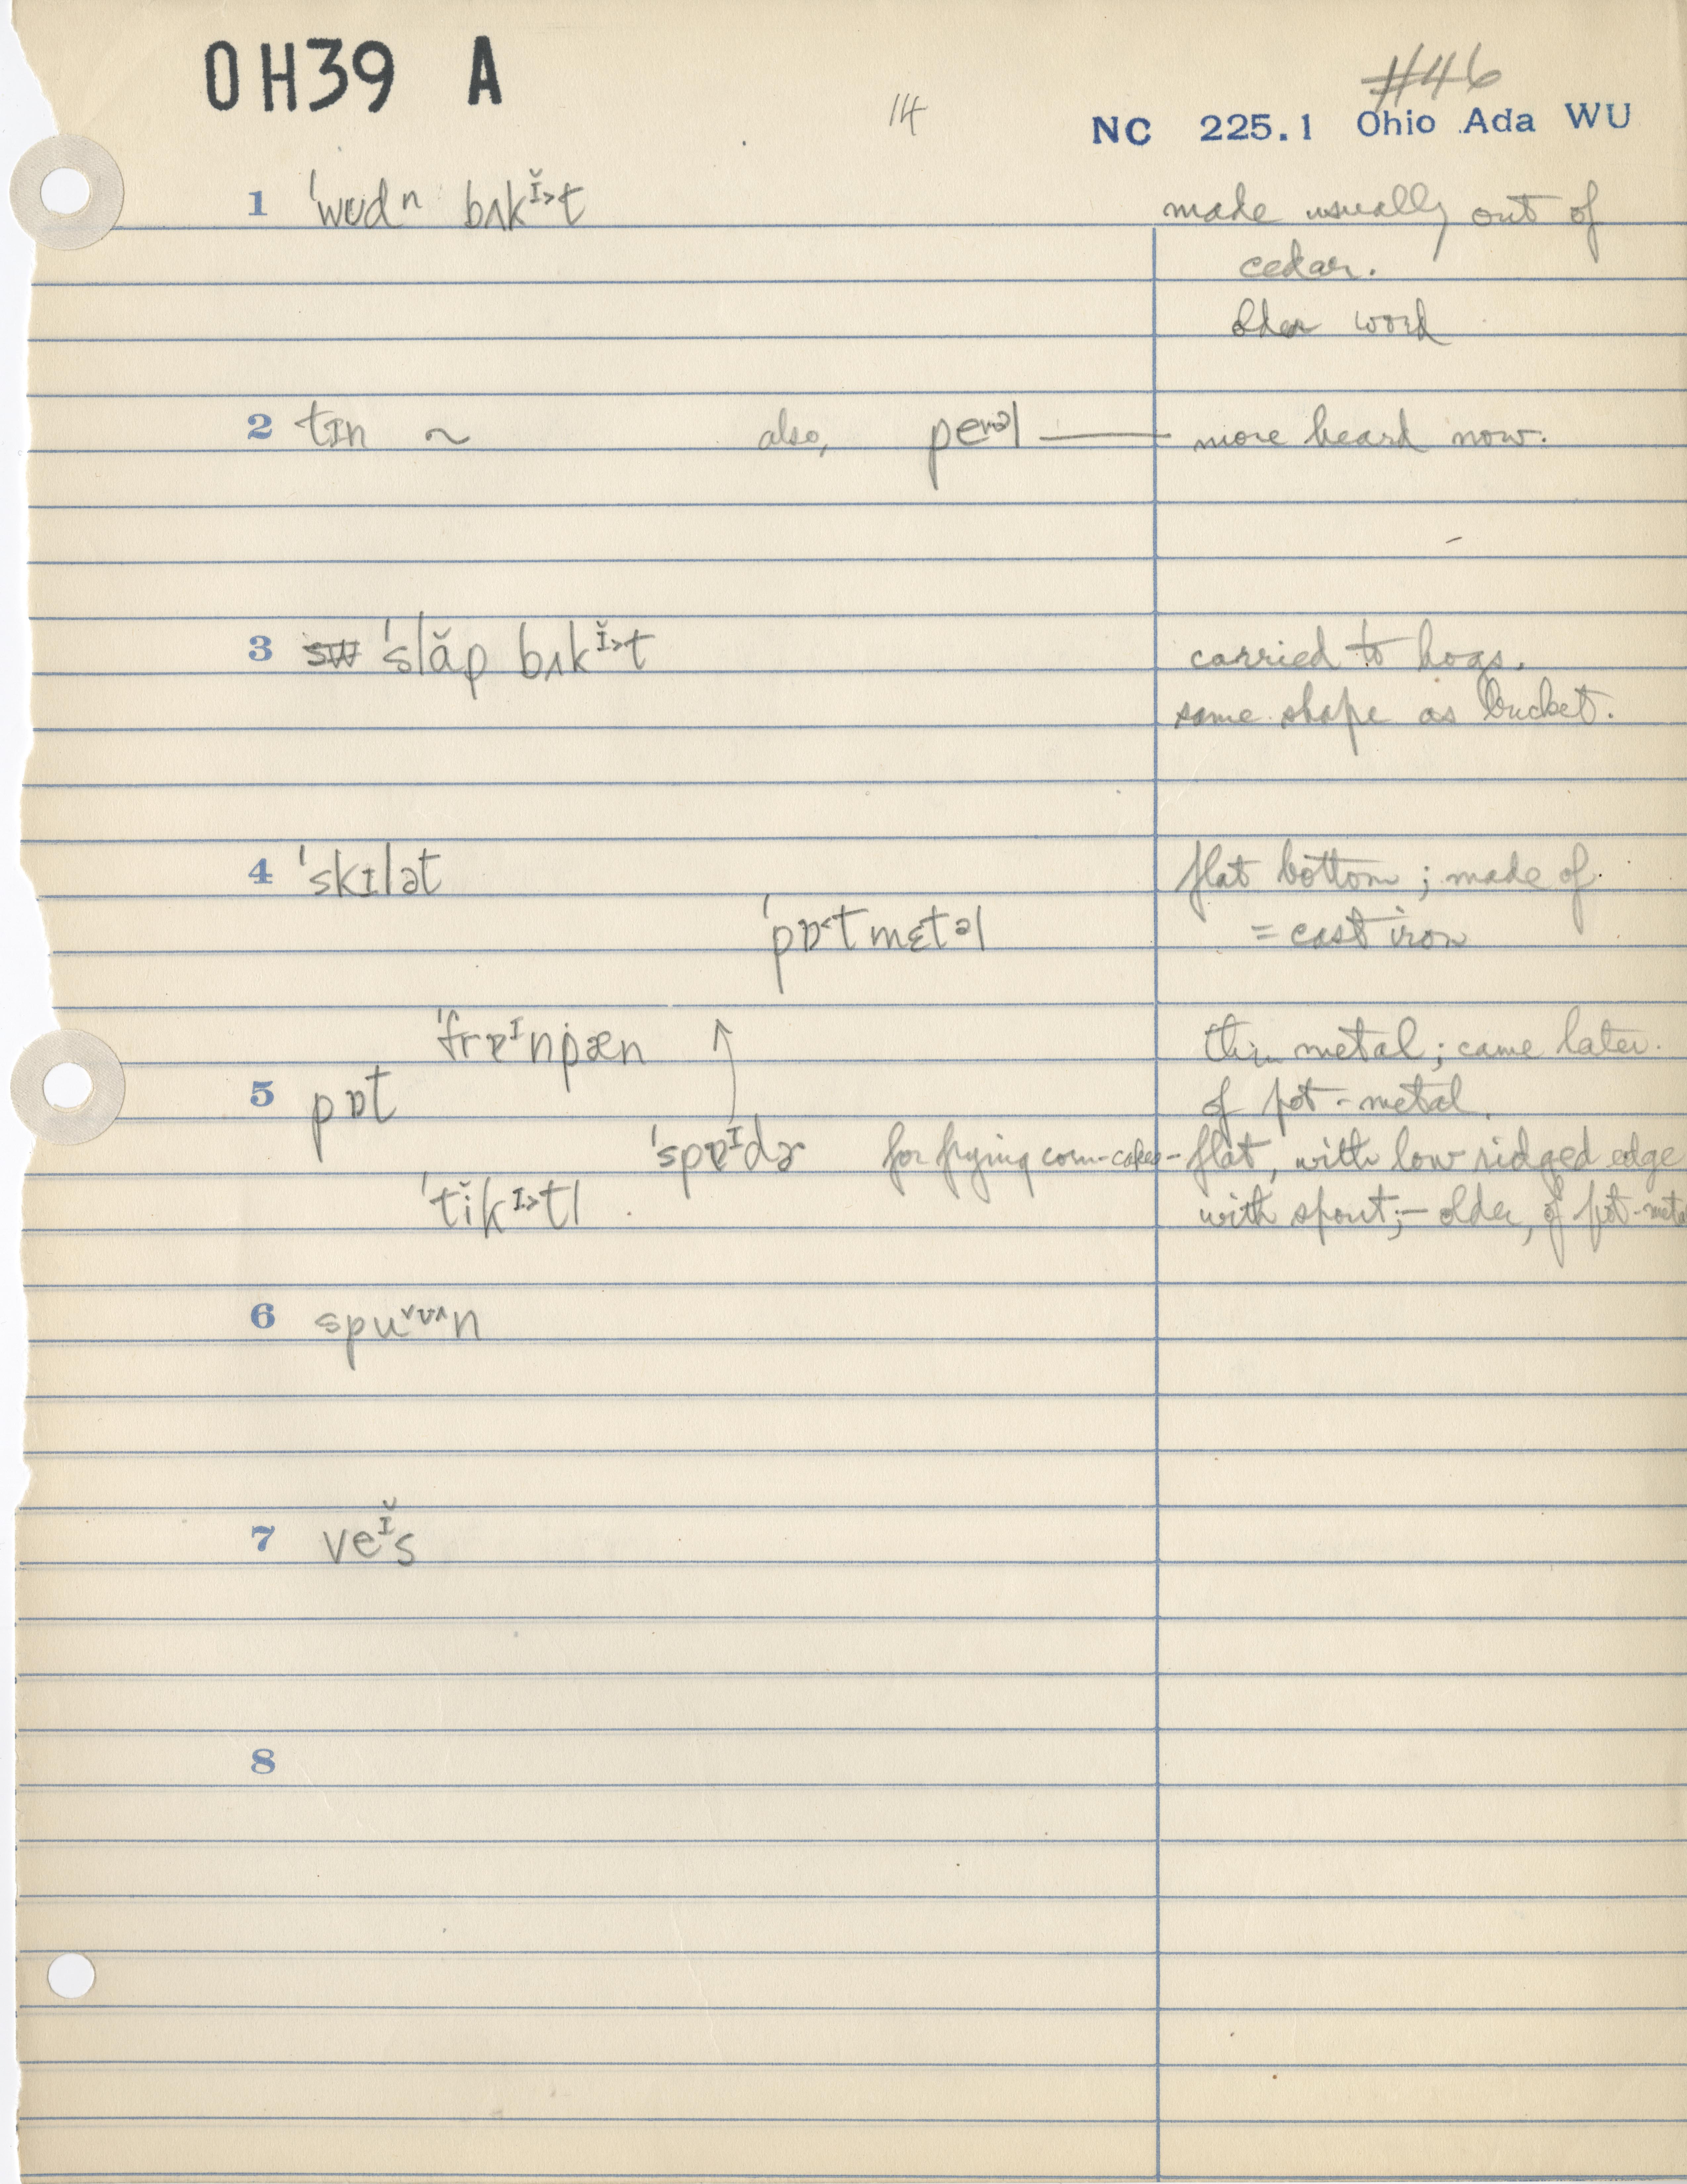 OH39 A
#46
14
NC 225.1 Ohio Ada WU
1 ˈwʊdⁿ bʌkɪ̆˃t made usually out of
cedar.
older word
2 tɪn ~ also, peᵛᵊl — more heard now.
3 sw ˈslɑ̆p bʌkɪ̆˃t carried to hogs.
same shape as bucket.
4 ˈskɪlət flat bottom; made of
ˈpɒ˂tmɛtəl = cast iron
ˈfrɐᶦnpæn ↑ thin metal; came later.
5 pɒt of pot-metal.
ˈspɐᶦdɚ for frying corn-cakes - flat, with low ridged edge
ˈtĭkɪ˃tl with spout; — older, of pot-meta
6 spuᵛᶷ^n
7 veɪ̆s
8